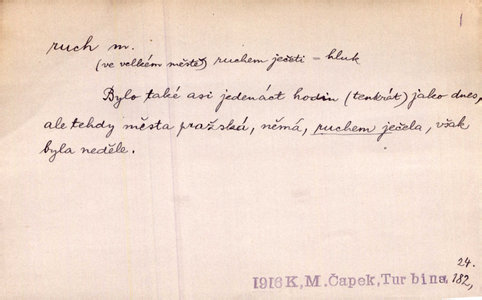 1
ruch m.
(ve velkém městě) ruchem ječeti = hluk
Bylo také asi jedenáct hodin (tenkrát) jako dnes,
ale tehdy města pražská, němá, ruchem ječela, však
byla neděle.
24.
1916 K. M. Čapek, Turbina 182,